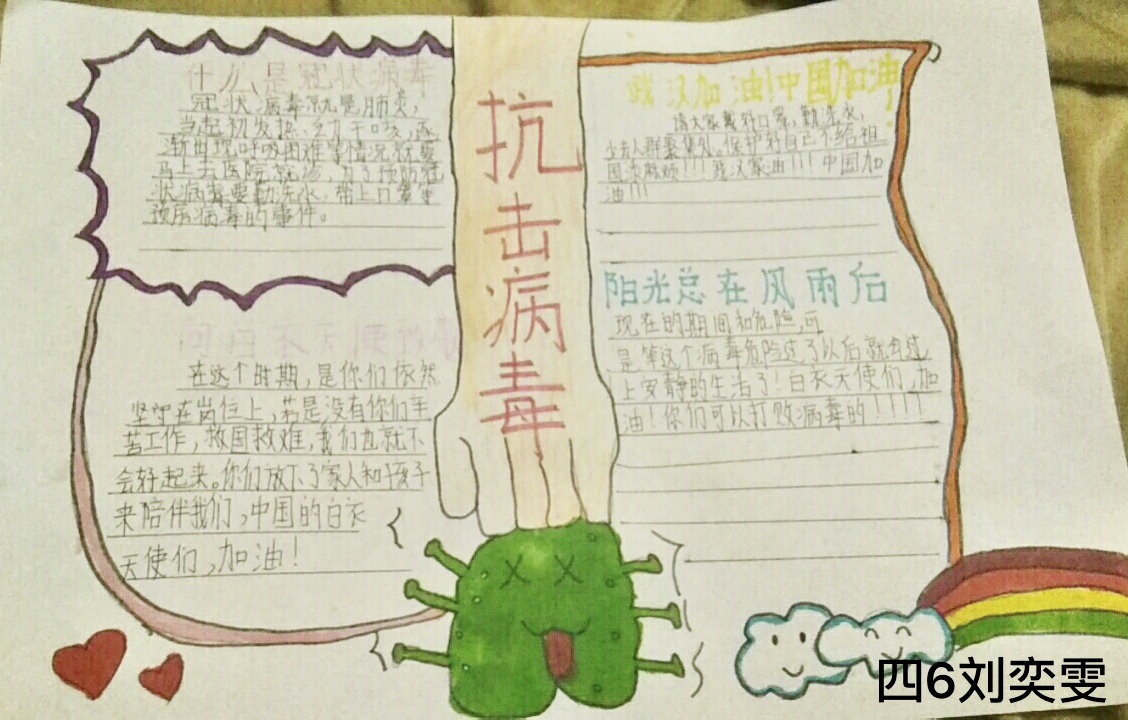 什么是冠状病毒
冠状病毒就是肺炎，
当起初发热、乏力干咳、逐
渐出现呼吸困难等情况就要
马上去医院就诊，为了预防冠
状病毒要勤洗水，带上口罩等
预防病毒的事件。
抗击病毒
武汉加油!中国加油!
请大家戴好口罩，勤洗水，
少去人群聚集处。保护好自己不给祖
国添麻烦!!!武汉家油!!!中国加
油!!!
阳光总在风雨后
现在的期间和危险，可
是等这个病毒危险过了以后就会过
上安静的生活了!白衣天使们，加
油!你们可以打败病毒的!!!!
在这个时期，是你们依然
坚守在岗位上，若是没有你们辛
苦工作，救国救难，我们也就不
会好起来。你们放下了家人和孩子
来陪伴我们，中国的白衣
天使们，加油!
四6刘奕雯